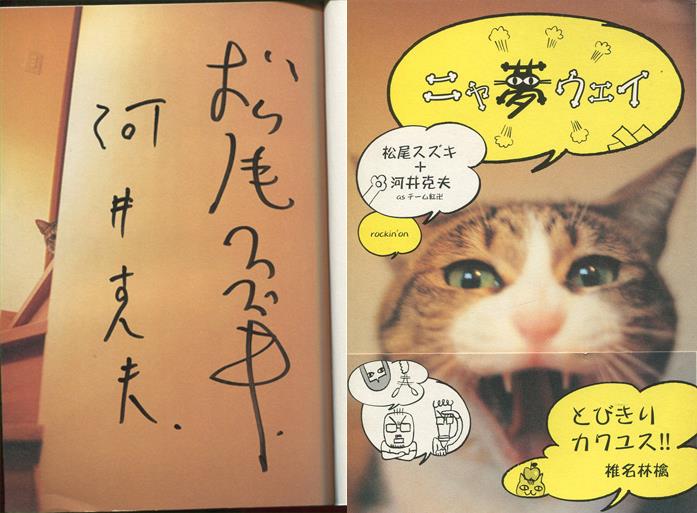 松尾スズキ
河井克夫
ニャ夢ウェイ
松尾スズキ
+
河井克夫
as チーム紅卍
rockin'on
とびきり
カワユス!!
椎名林檎